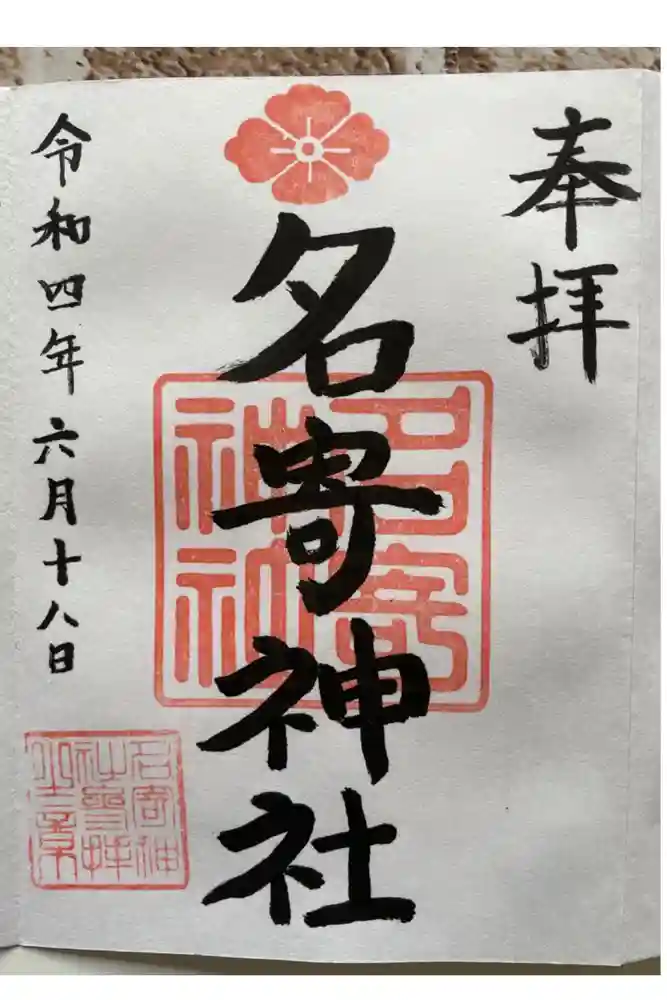 奉拝
名寄神社
名寄神社
令和四年六月十八日
名寄神社参拝之章